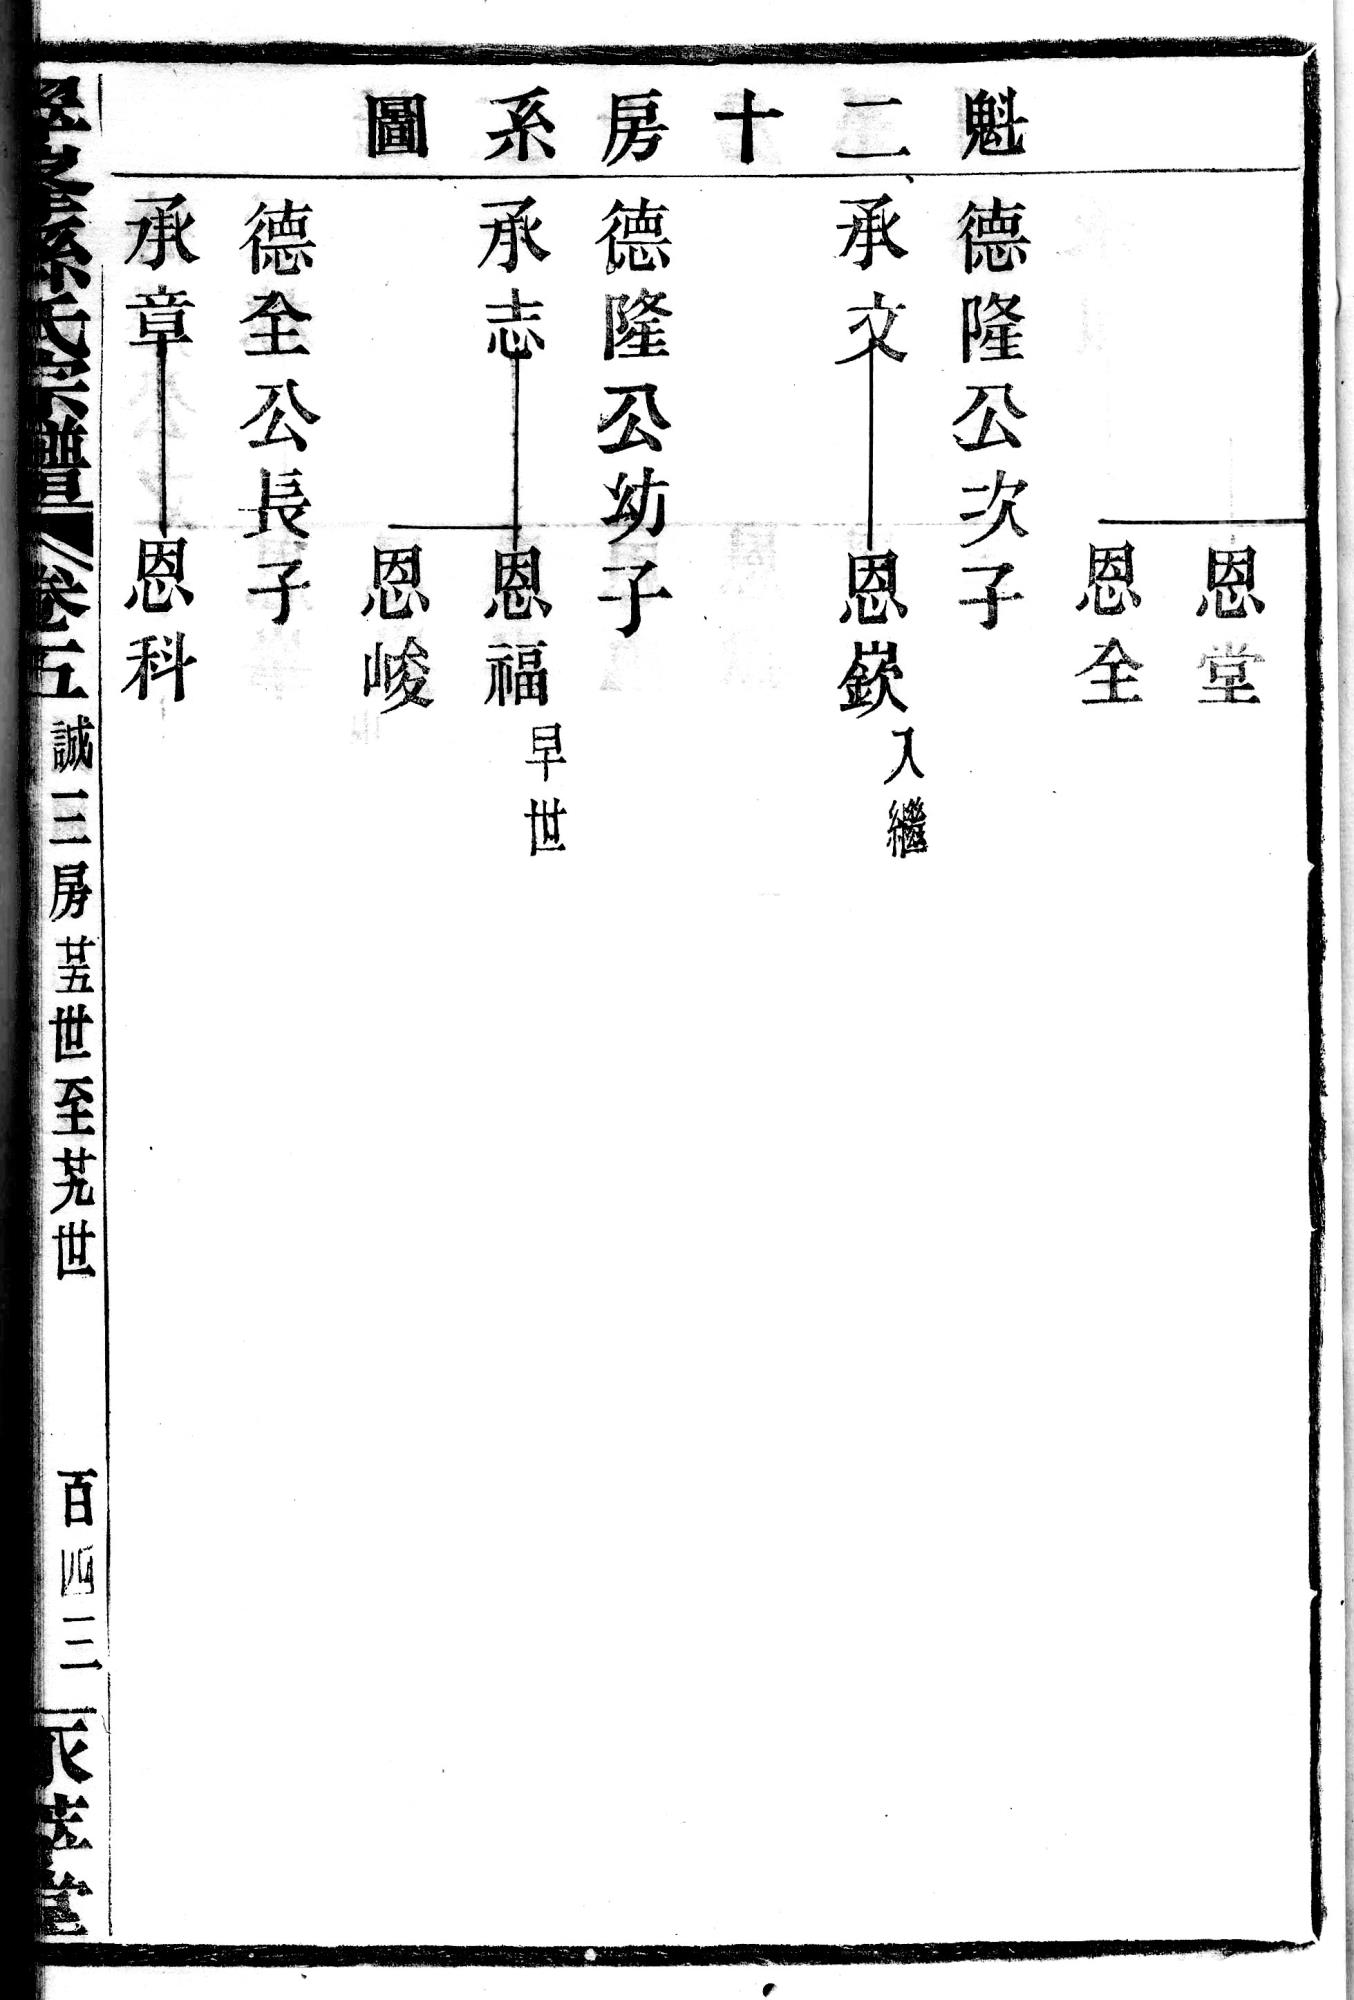 魁二十房系圖
恩堂
恩全
德隆公次子
承文
恩嶔入繼
德隆公幼子
承志
恩福早世
恩峻
德全公長子
承章
恩科
孫氏宗譜
卷五
誠三房
廿五世至廿九世
百四三
堂